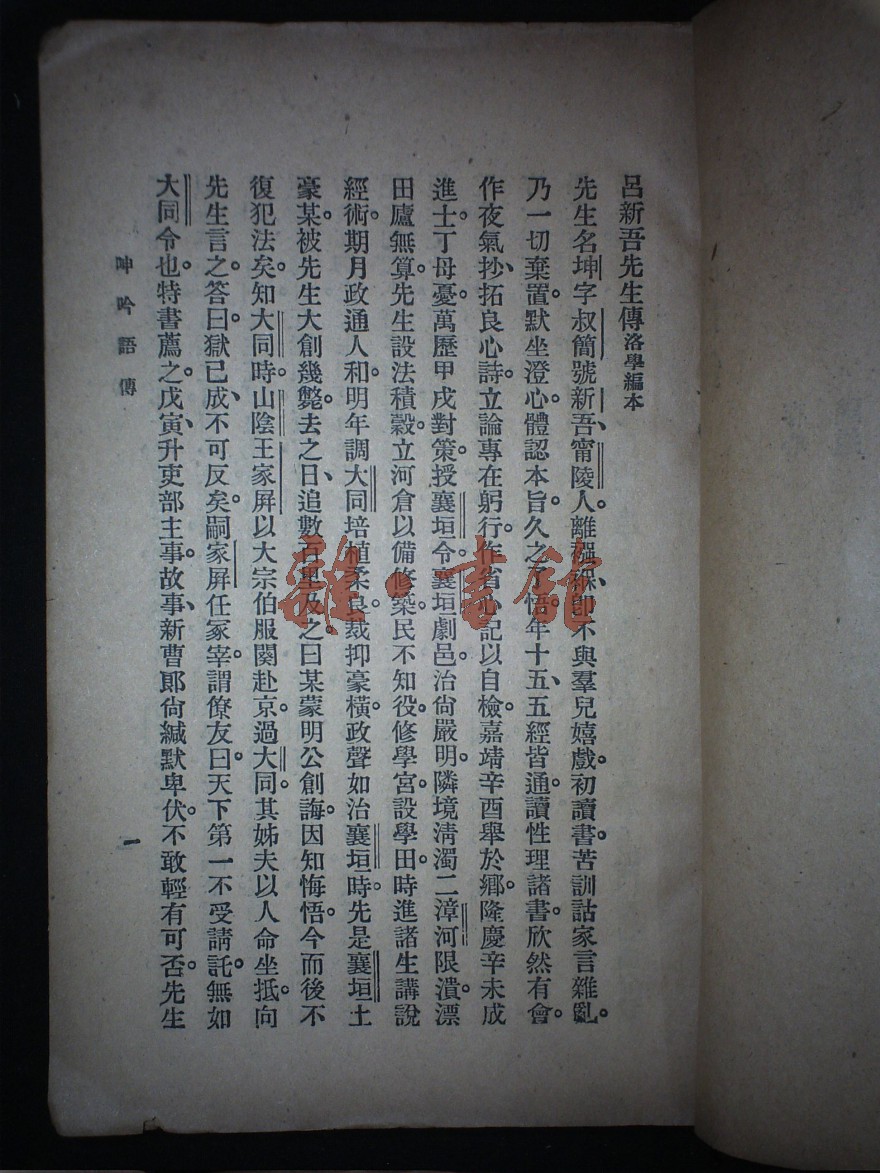 呂新吾先生傳洛學編本
先生名坤字叔簡號新吾、甯陵人。離襁褓、卽不與羣兒嬉戲。初讀書苦訓詁家言雜亂。
乃一切棄置。默坐澄心。體認本旨。久之了悟。年十五、五經皆通。讀性理諸書。欣然有會。
作夜氣抄、拓良心詩。立論專在躬行。作省心記以自檢。嘉靖辛酉舉於鄉。隆慶辛未成
進士。丁母憂。萬歷甲戌對策。授襄垣令。襄垣劇邑。治尙嚴明。隣境淸濁二漳河限潰。漂
田廬無算。先生設法積穀。立河倉以備修築。民不知役。修學宮。設學田。時進諸生講說
經術。期月政通人和。明年調大同。培植柔良。裁抑豪橫。政聲如治襄垣時。先是襄垣土
豪某。被先生大創幾斃。去之日、追數百里及之。曰某蒙明公創誨。因知悔悟。今而後不
復犯法矣。知大同時。山陰王家屏以大宗伯服闋赴京。過大同。其姊夫以人命坐抵。向
先生言之。答曰。獄已成、不可反矣。嗣家屏任冢宰。謂僚友曰。天下第一不受請託。無如
大同令也。特書薦之。戊寅、升吏部主事。故事、新曹郞尙緘默卑伏。不敢輕有可否。先生
呻吟語傳
一
雜·書館